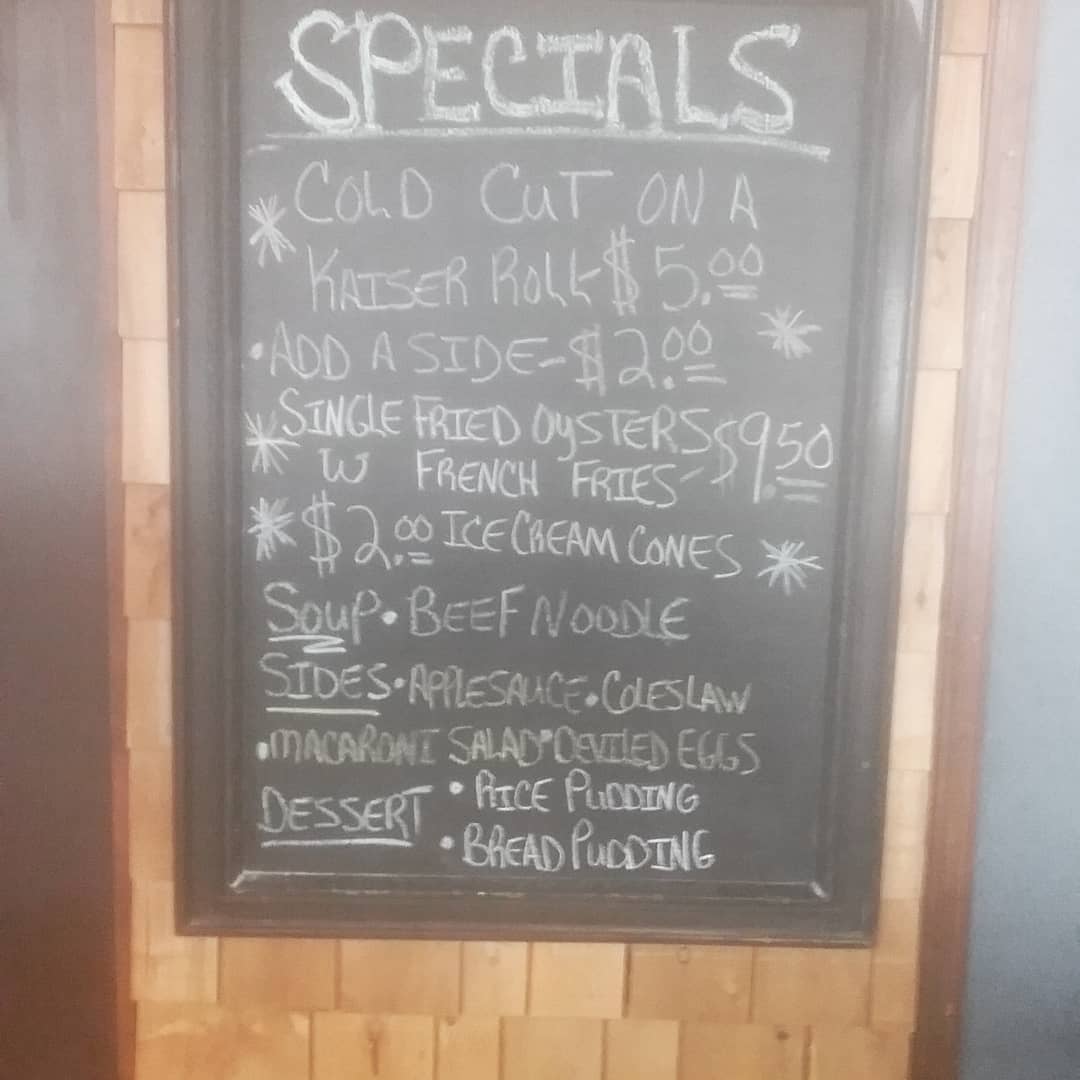 SPECIALS
* COLD CUT ON A
KAISER ROLL-$5.00 *
•ADD A SIDE-$2.00
* SINGLE FRIED OYSTERS $9.50
W FRENCH FRIES-
* $2.00 ICE CREAM CONES *
SOUP•BEEF NOODLE
SIDES•APPLESAUCE•COLESLAW
•MACARONI SALAD•DEVILED EGGS
DESSERT •RICE PUDDING
•BREAD PUDDING